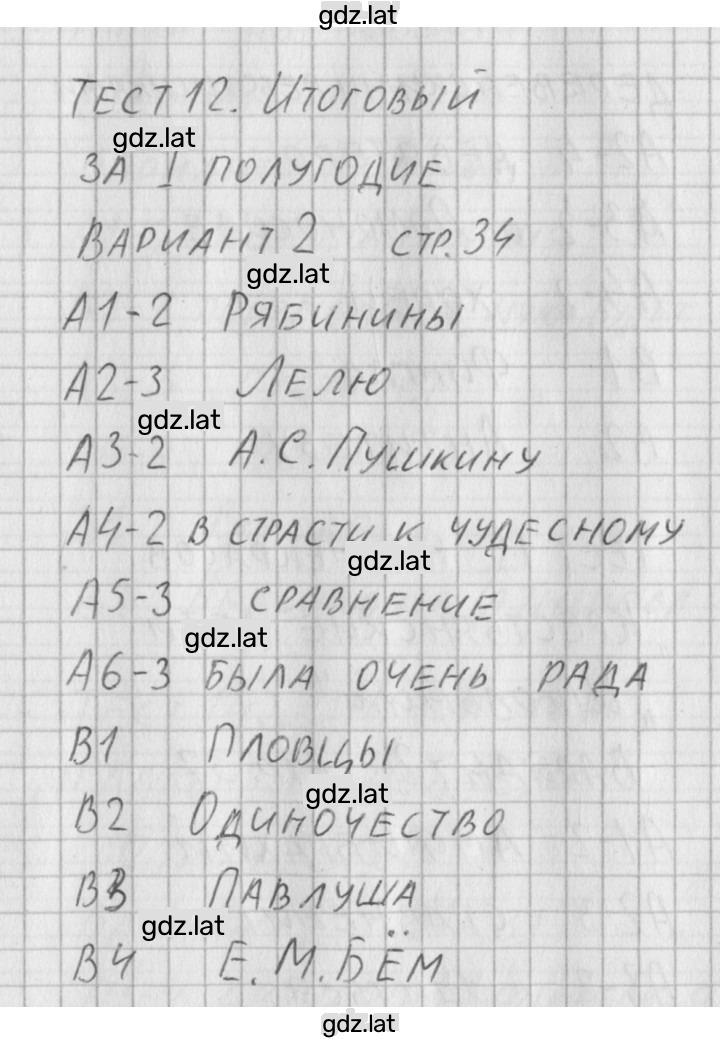 gdz.lat
ТЕСТ 12. ИТОГОВЫЙ
gdz.lat
ЗА I ПОЛУГОДИЕ
ВАРИАНТ 2 СТР. 34
gdz.lat
А1-2 РЯБИНИНЫ
А2-3 ЛЕЛЮ
gdz.lat
А3-2 А.С. ПУШКИНУ
А4-2 В СТРАСТИ К ЧУДЕСНОМУ
gdz.lat
А5-3 СРАВНЕНИЕ
gdz.lat
А6-3 БЫЛА ОЧЕНЬ РАДА
В1 ПЛОВЦЫ
gdz.lat
В2 ОДИНОЧЕСТВО
В3 ПАВЛУША
gdz.lat
В4 Е.М. БЁМ
gdz.lat